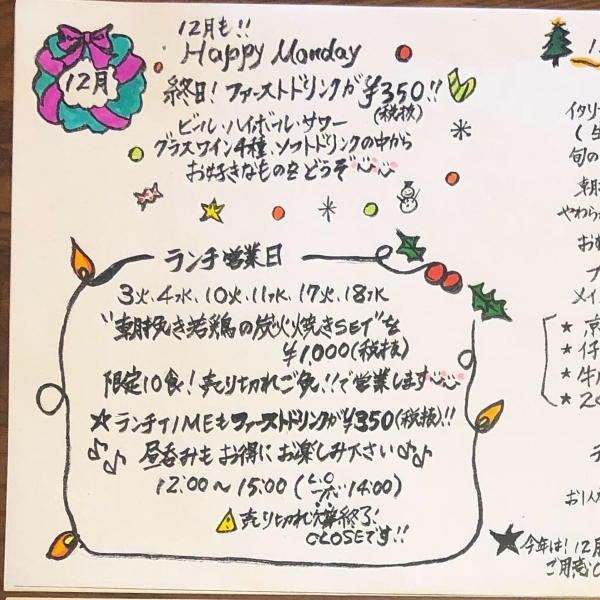 12月
12月も!!
Happy Monday
終日!ファーストドリンクが¥350!!
(税抜)
ビール・ハイボール・サワー
グラスワイン4種、ソフトドリンクの中から
お好きなものをどうぞ
ランチ営業日
3火、4水、10火、11水、17火、18水
"朝挽き若鶏の炭火焼きSET"を
¥1,000(税抜)
限定10食!売り切れご免!!で営業します
★ランチTIMEもファーストドリンクが¥350(税抜)!!
昼呑みもお得にお楽しみ下さい
12:00〜15:00(L.O 14:00)
売り切れ次第終了!
CLOSEです!!
イタリ
(生
旬の
朝
やわら
お
メイ
★京
★仔
★牛
★20
お1人
★今年は!12月
ご用意